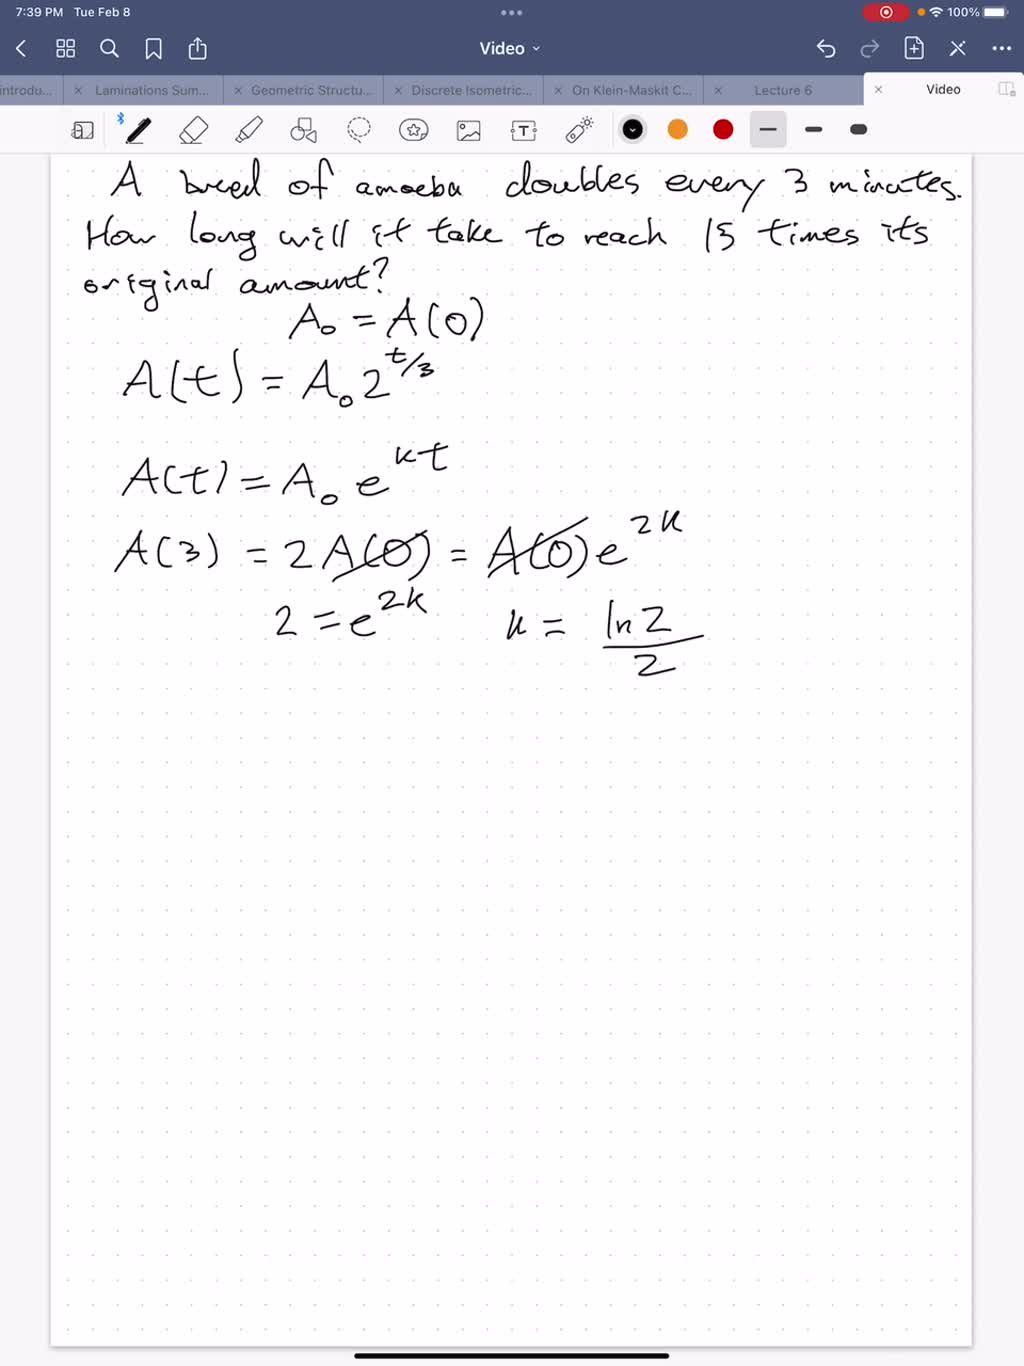 7:39 PM Tue Feb 8 100%
Video
introdu... × Laminations Sum... × Geometric Structu... × Discrete Isometric... × On Klein-Maskit C... × Lecture 6 × Video
A breed of amoeba doubles every 3 minutes.
How long will it take to reach 15 times its
original amount?
A₀ = A(0)
A(t) = A₀ 2^{t/3}
A(t) = A₀ e^{kt}
A(3) = 2 A(0) = A(0) e^{2k}
2 = e^{2k} k = ln 2 / 2